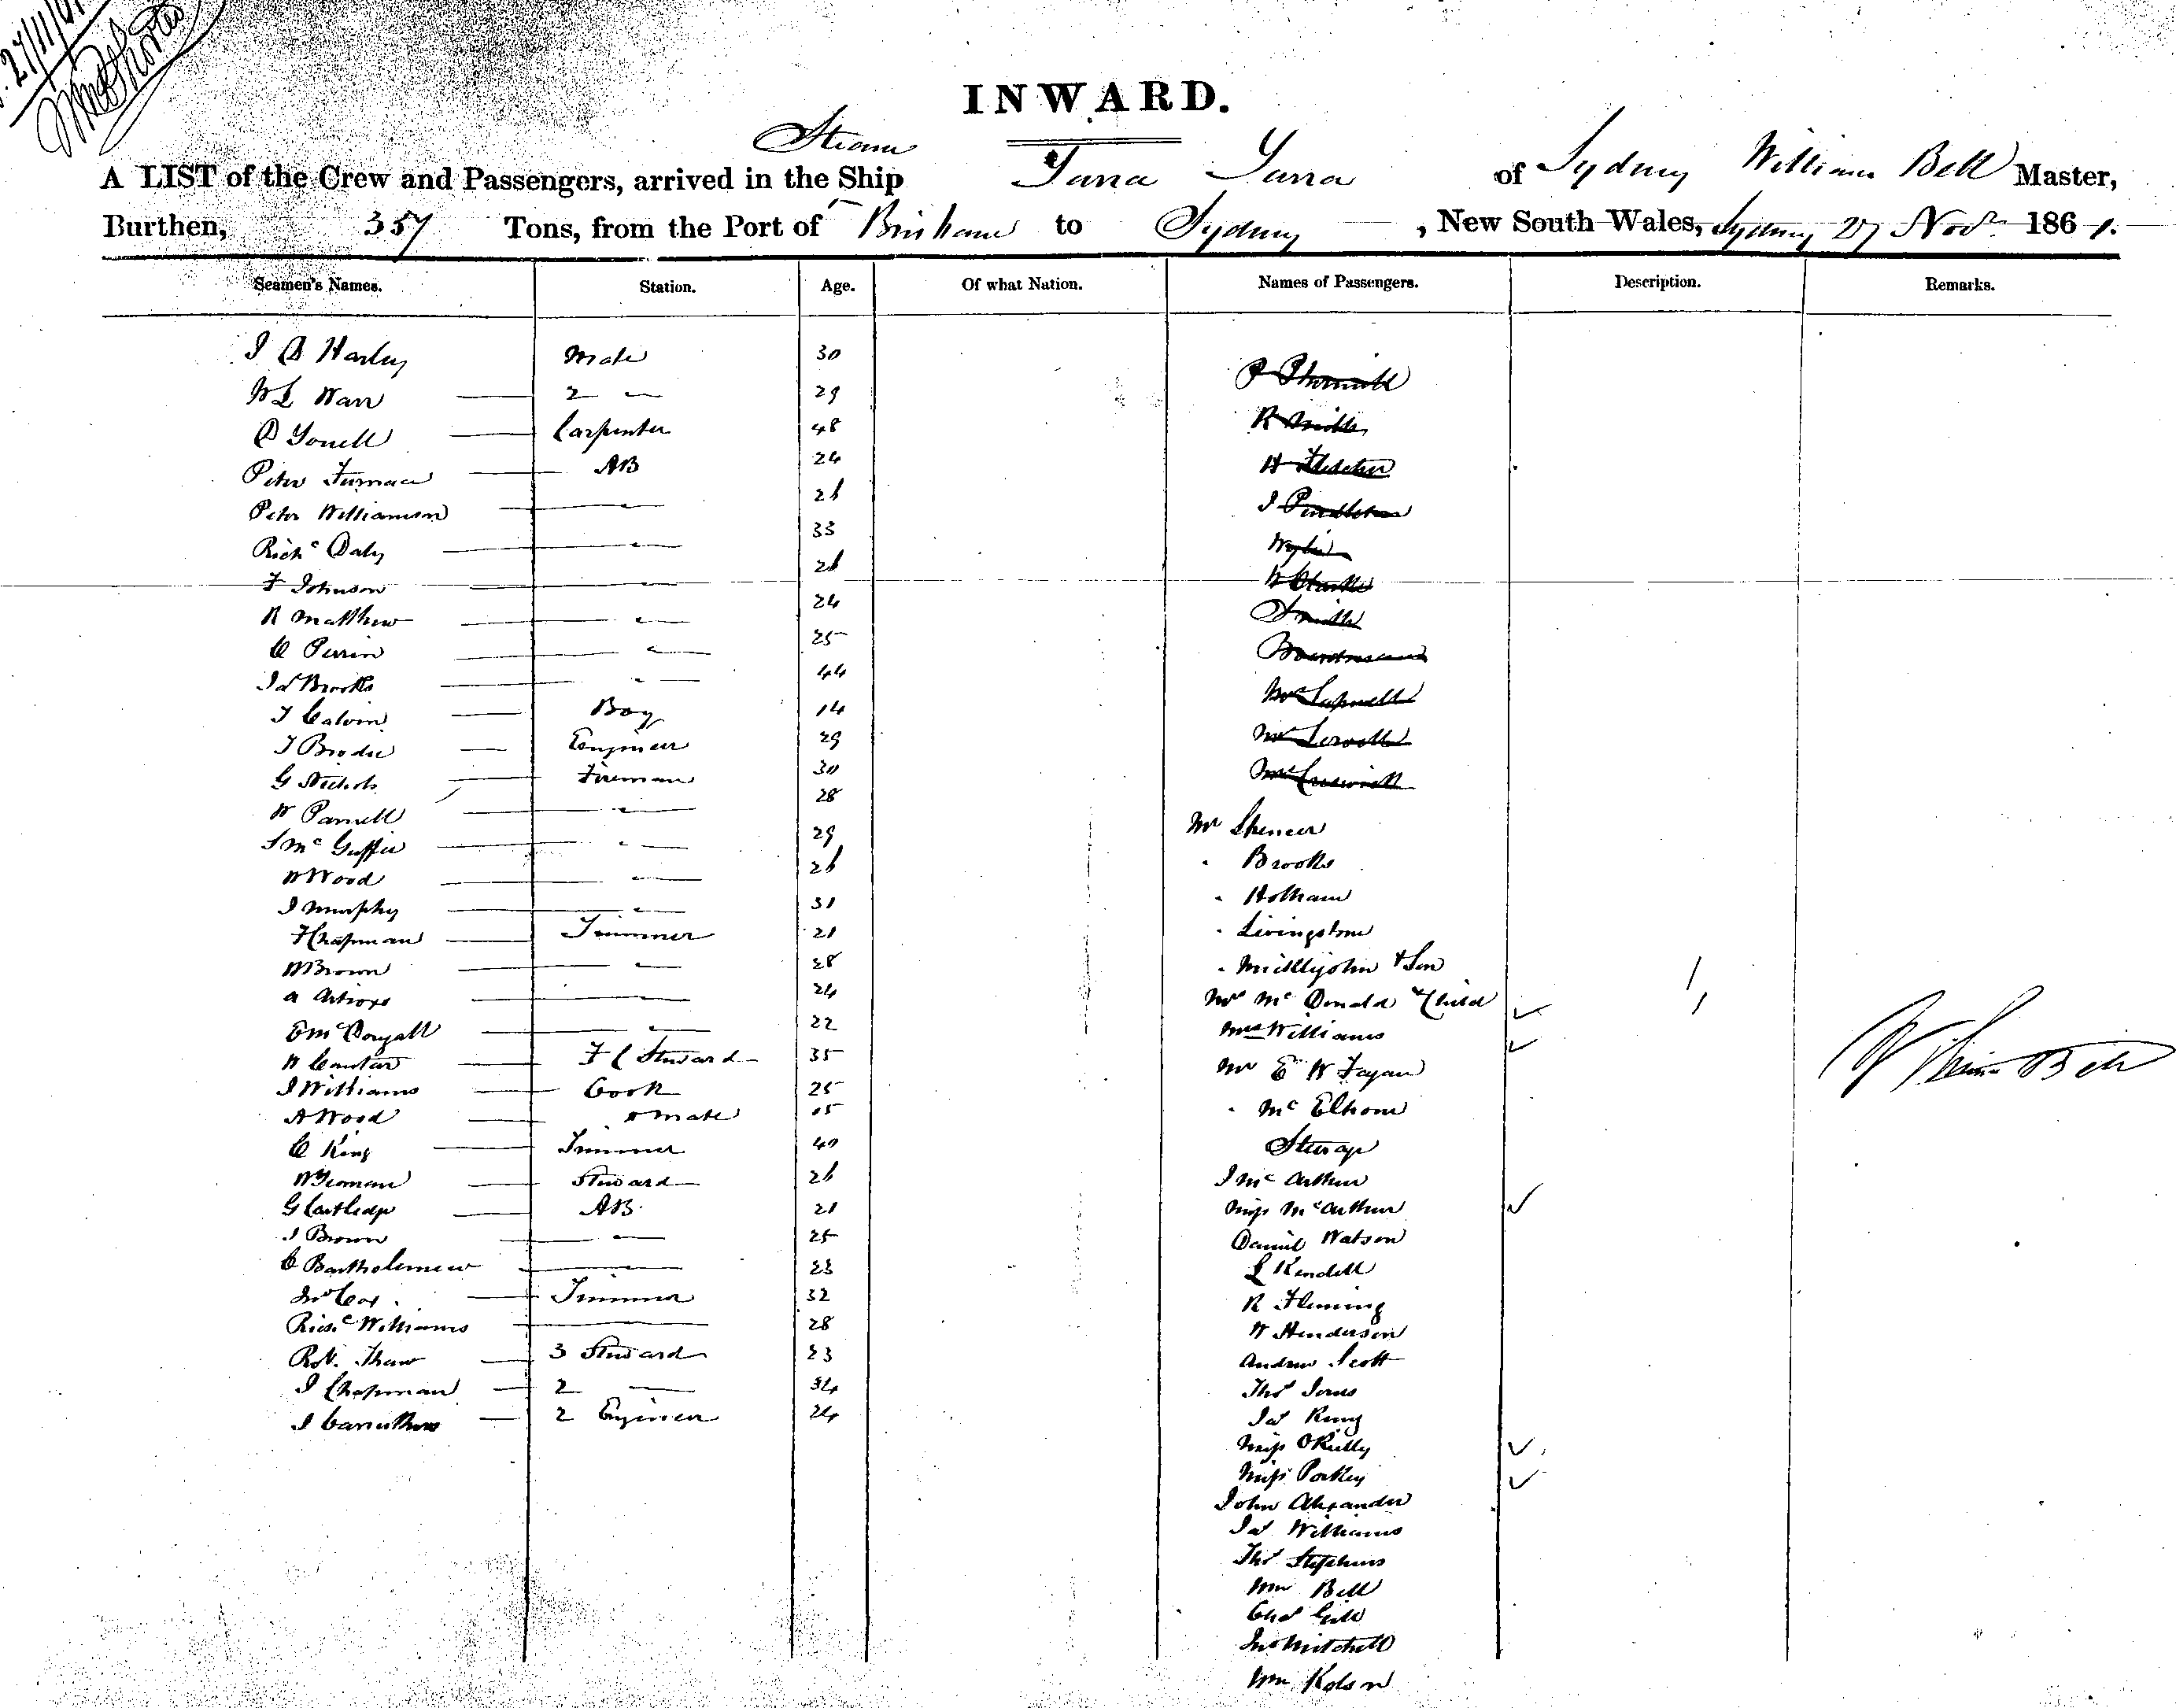 27/11/61
INWARD.
Steam
A LIST of the Crew and Passengers, arrived in the Ship Yarra Yarra of Sydney William Bell Master,
Burthen, 357 Tons, from the Port of Brisbane to Sydney, New South Wales, Sydney 27 Novr 1861.
Seamen's Names. Station. Age. Of what Nation. Names of Passengers. Description. Remarks.
J B Harley Mate 30
W L Warr 2 " 29
D Youell Carpenter 48
Peter Furnace AB 24
Peter Williamson " 26
Richd Daly " 33
F Johnson " 26
R Matthew " 24
C Perrin " 25
Jas Brooks " 44
T Calvin Boy 14
T Brodie Engineer 29
G Nichols Fireman 30
W Parnell " 28
S McGuffie " 29
W Wood " 26
J Murphy " 31
F Chapman Trimmer 21
W Brown " 28
A 24
E McDougall " 22
W F C Steward 35
J Williams Cook 25
A Wood " mate
C King Trimmer 40
W Yeoman Steward 26
G Cartledge AB 21
J Brown " 25
C Bartholemew 23
Jno Cox Trimmer 32
Richd Williams 28
Robt. Thaw 3 Steward 23
J Chapman 2 34
J Carruthers 2 Engineer 24
R Smith
H Fletcher
J Pendleton
Wylie
W Clarke
Smith
Boardman
Mr Spencer
" Brooks
" Hotham
" Livingstone
" Micklyjohn & Son
Mrs McDonald & Child
Mrs Williams
Mr E W Fagan
" McElhone
Steerage
J McArthur
Miss McArthur
Daniel Watson
L Kendell
R Fleming
W Henderson
Andrew Scott
Thos Jones
Jas King
Miss O'Reilly
Miss Porkey
John Alexander
Jas Williams
Thos Stephens
Wm Bell
Chas Gill
Jno Mitchell
Wm Rolson
William Bell